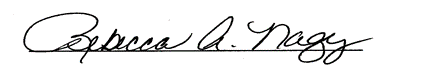 Rebecca A. Nagy